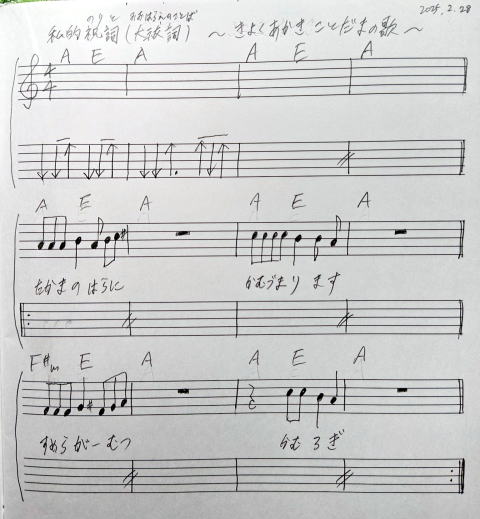 2025.2.28
のりと おおはらえのことば
私的祝詞(大祓詞) ～きよくあかきことだまの歌～
A E A A E A
A E A A E A
たかまのはらに かむづまります
F#m E A A E A
すめらがーむつ かむろぎ